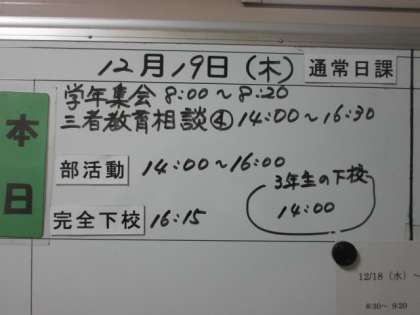 12月19日(木) 通常日課
学年集会 8:00～8:20
三者教育相談④ 14:00～16:30
本日
部活動 14:00～16:00
3年生の下校
14:00
完全下校 16:15
12/18（水）～
8:30～ 9:20